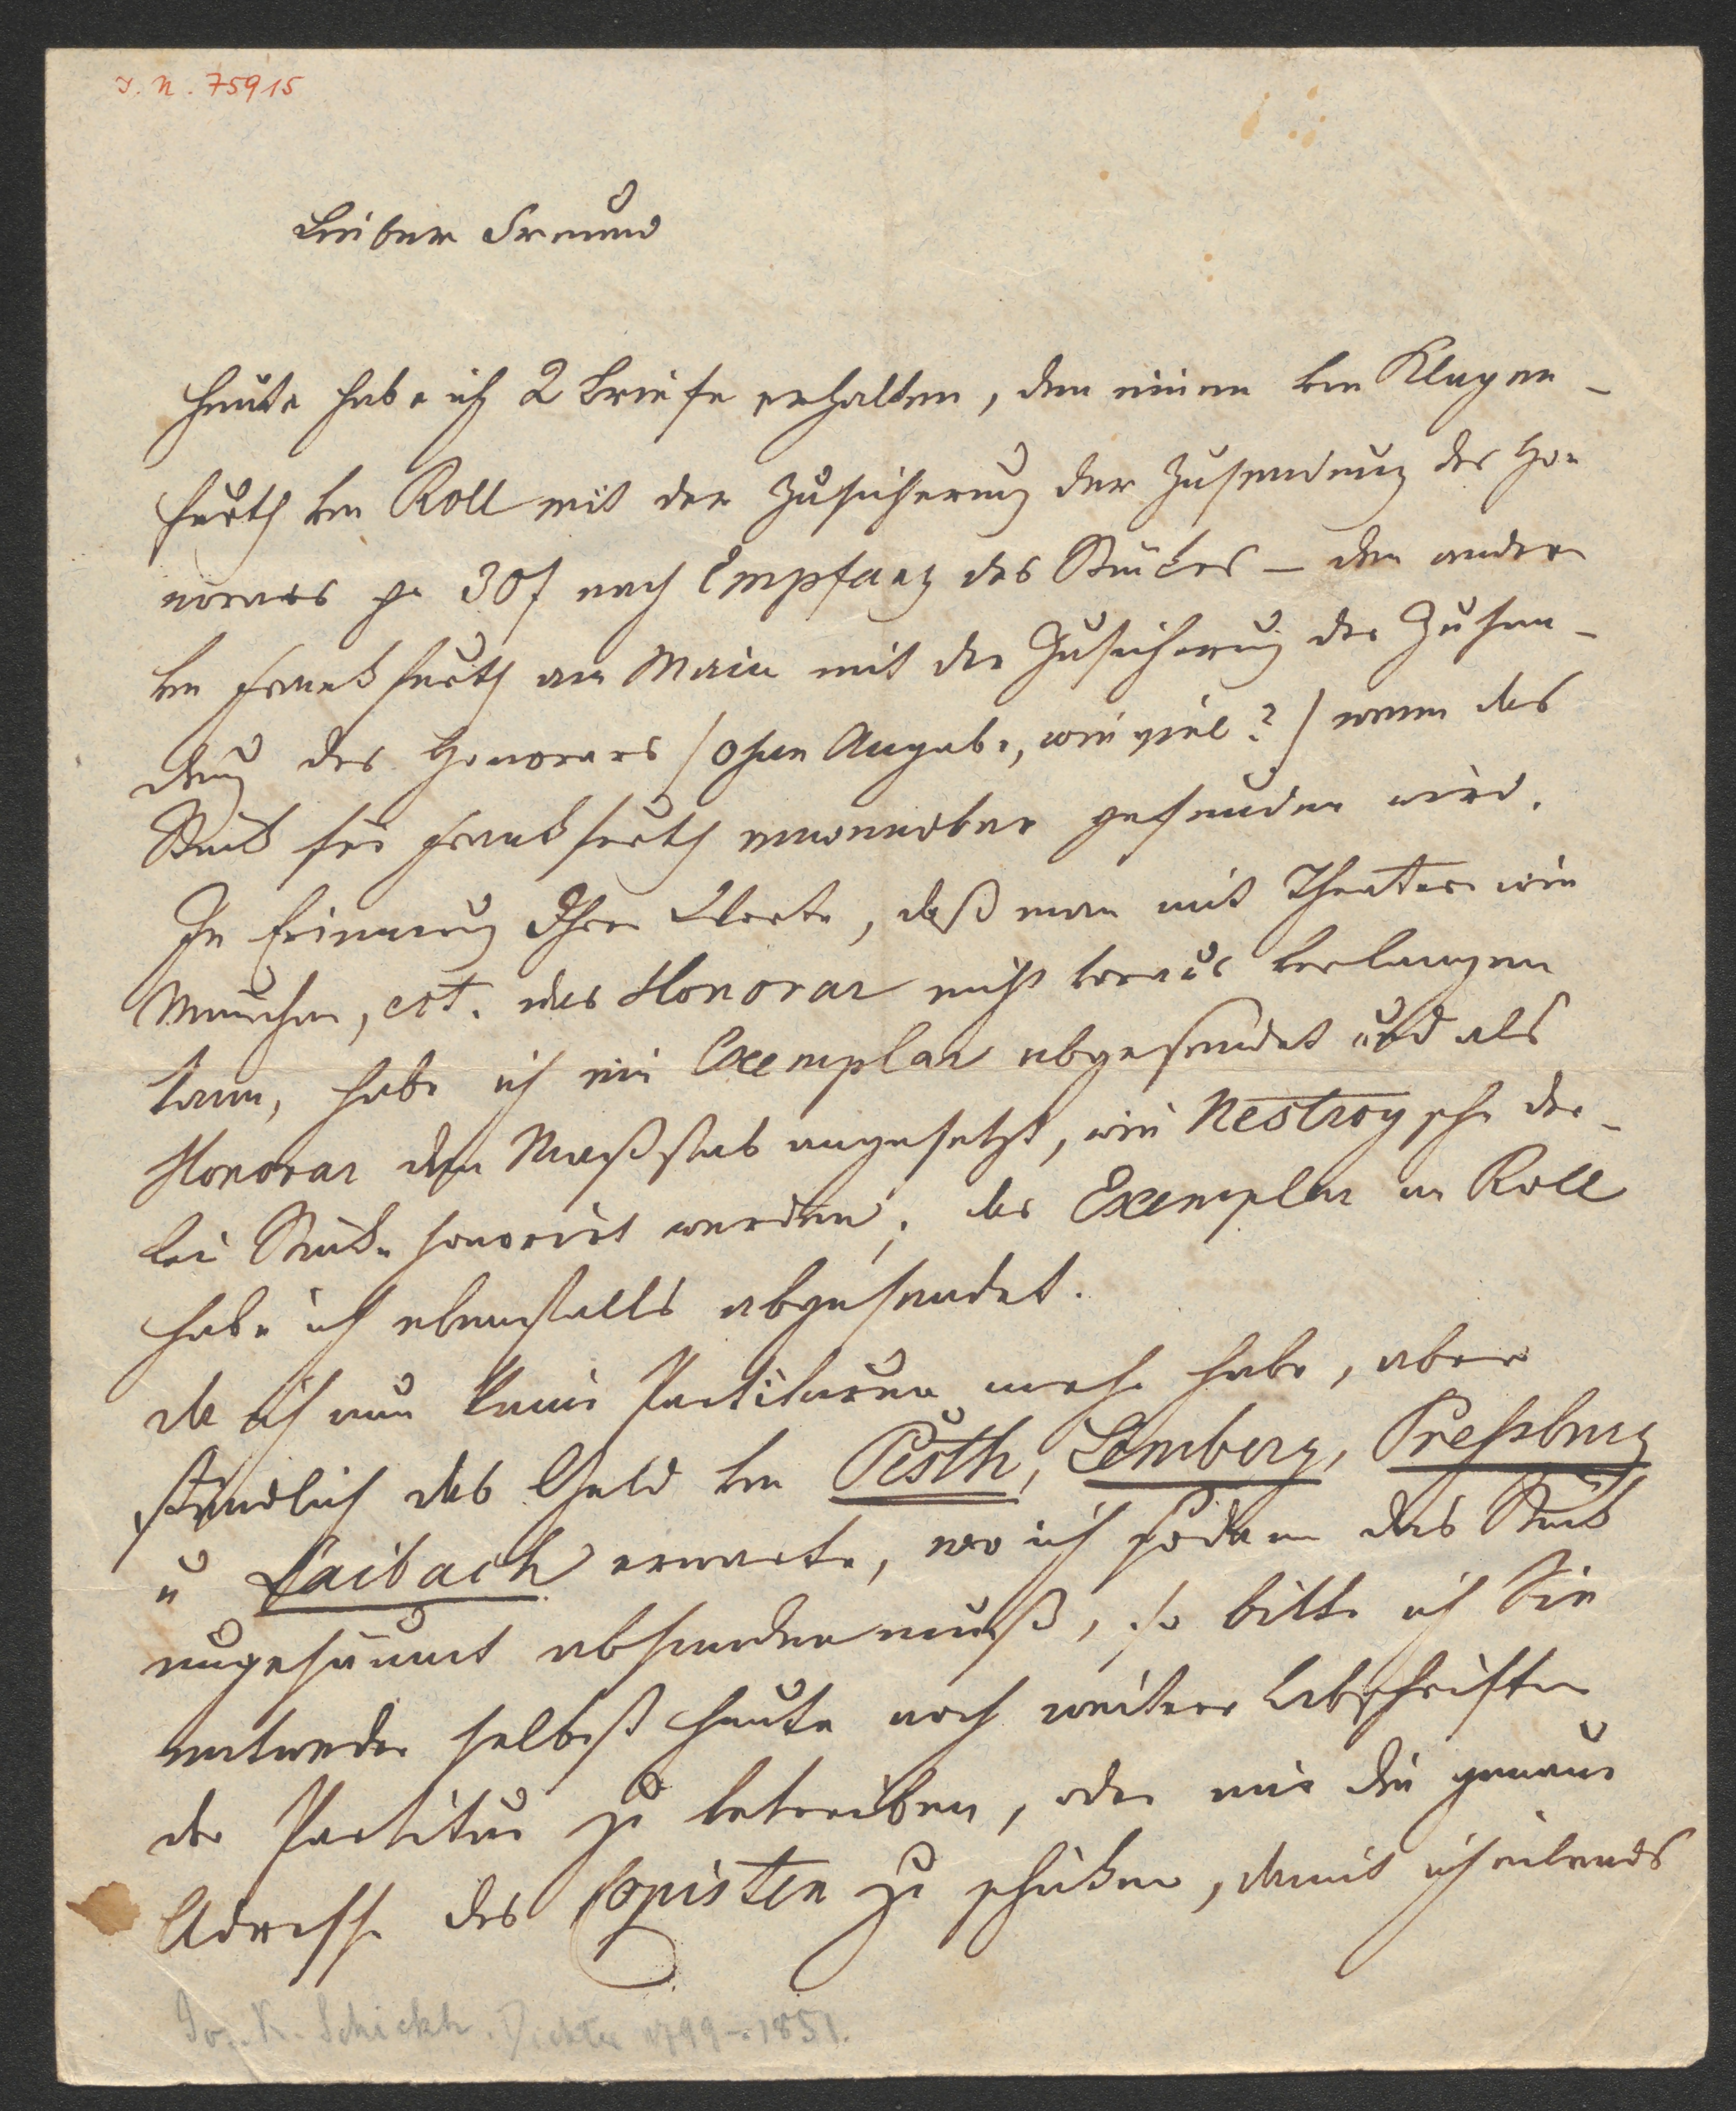 I. N. 75915
Lieber Freund
Heute habe ich 2 Briefe erhalten, den einen von Klagen-
furth von Roll mit der Zusicherung der Zusendung des Ho-
norars pr 30f nach Empfang des Stückes – den andern
von Frankfurth am Main mit der Zusicherung der Zusen-
dung des Honorars /ohne Angabe, wie viel?/ wenn das
Stück für Frankfurth anwendbar gefunden wird.
In Erinnerung Ihrer Worte, daß man mit Theater wie
München, ect. das Honorar nicht voraus verlangen
kann, habe ich ein Exemplar abgesendet und als
Honorar den Maßstab angesetzt, wie Nestroysche der-
lei Stücke honorirt werden; das Exemplar an Roll
habe ich ebenfalls abgesendet.
Da ich nun keine Partituren mehr habe, aber
stündlich das Geld von Pesth, Lemberg, Preßburg
u Laibach erwarte, wo ich sodann das Stück
ungesäumt absenden muß, so bitte ich Sie
entweder selbst heute noch weitere Abschriften
der Partitur zu betreiben, oder mir die genaue
Adresse des Copisten zu schicken, damit ich eilends
Jos. K. Schickh. Dichter 1799–1851.